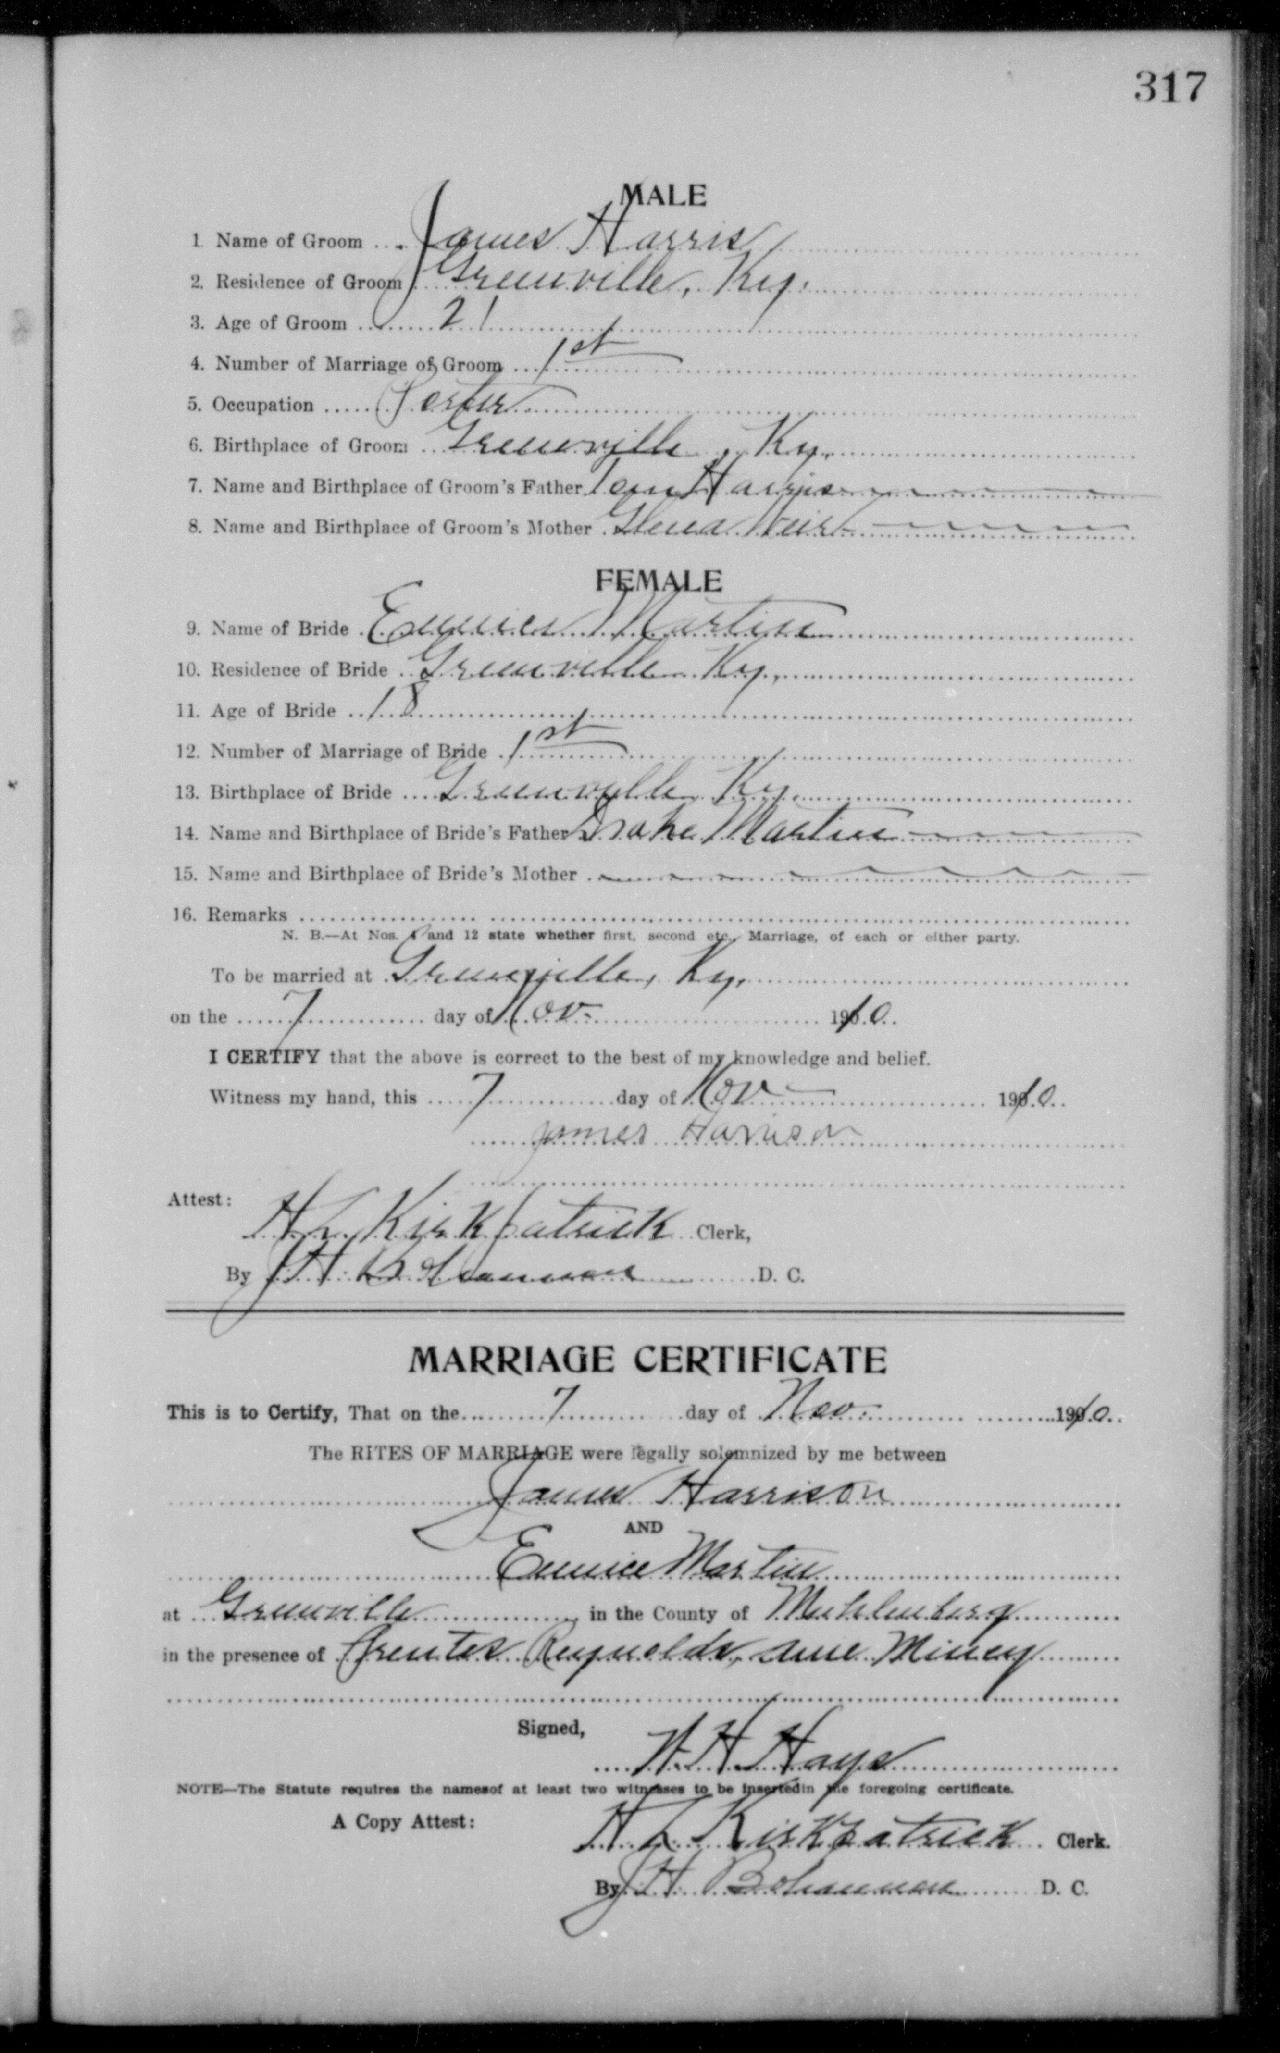 317
MALE
1. Name of Groom James Harris
2. Residence of Groom Greenville, Ky.
3. Age of Groom 21
4. Number of Marriage of Groom 1st
5. Occupation Porter
6. Birthplace of Groom Greenville, Ky.
7. Name and Birthplace of Groom's Father Tom Harris
8. Name and Birthplace of Groom's Mother Weir
FEMALE
9. Name of Bride Eunice Martin
10. Residence of Bride Greenville Ky.
11. Age of Bride 18
12. Number of Marriage of Bride 1st
13. Birthplace of Bride Greenville Ky.
14. Name and Birthplace of Bride's Father Drake Martin
15. Name and Birthplace of Bride's Mother
16. Remarks
N. B.—At Nos. 4 and 12 state whether first, second etc., Marriage, of each or either party.
To be married at Greenville, Ky.
on the 7 day of Nov. 1910
I CERTIFY that the above is correct to the best of my knowledge and belief.
Witness my hand, this 7 day of Nov 1910
James Harrison
Attest:
H L Kirkpatrick Clerk,
By J H Bohannon D. C.
MARRIAGE CERTIFICATE
This is to Certify, That on the 7 day of Nov. 1910
The RITES OF MARRIAGE were legally solemnized by me between
James Harrison
AND
Eunice Martin
at Greenville in the County of Muhlenberg
in the presence of Reynolds,
Signed,
Hays
NOTE—The Statute requires the namesof at least two witnesses to be insertedin the foregoing certificate.
A Copy Attest:
H L Kirkpatrick Clerk.
By J H Bohannon D. C.